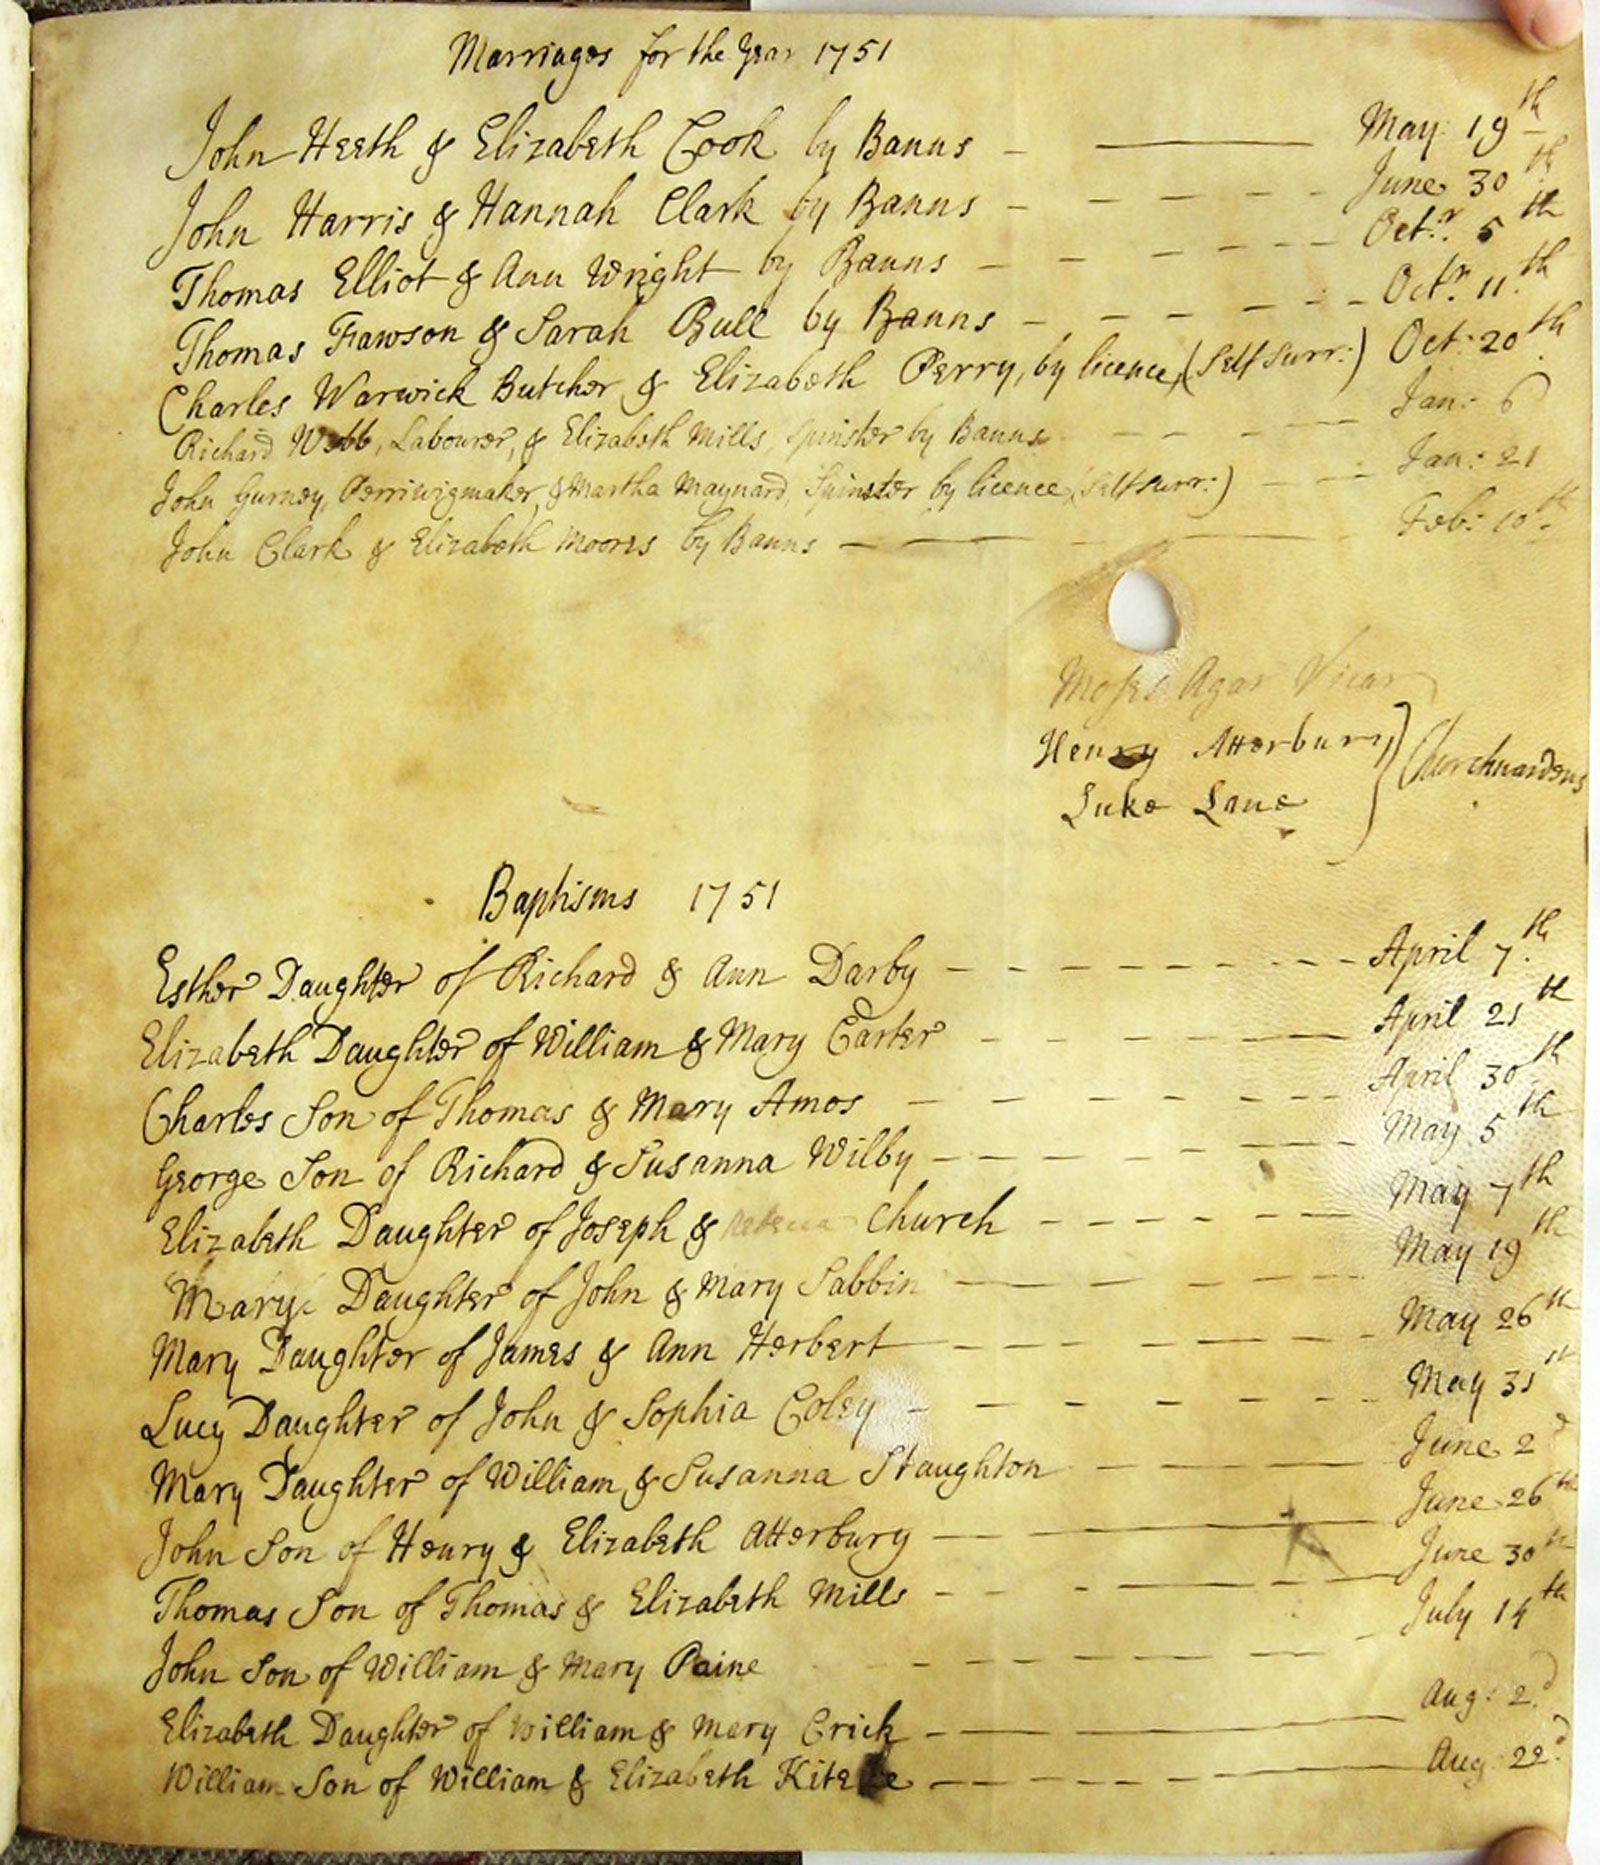 Marriages for the Year 1751
John Heeth & Elizabeth Cook by Banns - — May 19th
John Harris & Hannah Clark by Banns - - - - - - June 30th
Thomas Elliot & Ann Wright by Banns - - - - - - Octr. 5th
Thomas Fawson & Sarah Bull by Banns - - - - - - Octr. 11th
Charles Warwick Butcher & Elizabeth Perry, by licence, (Self Surr:) Oct: 20th
Richard Webb, Labourer, & Elizabeth Mills, Spinster by Banns - - - - Jan: 6
John Gurney, Perriwigmaker, & Martha Maynard, Spinster by licence, (Self surr:) - - - Jan: 21
John Clark & Elizabeth Moores by Banns — — - - - Feb: 10th
Moses Agar Vicar
Henry Atterbury
Luke Lane } Churchwardens
Baptisms 1751
Esther Daughter of Richard & Ann Darby - - - - - - - April 7th
Elizabeth Daughter of William & Mary Carter - - - - - - April 21th
Charles Son of Thomas & Mary Amos - - - - - - - April 30th
George Son of Richard & Susanna Wilby - - - - - - - May 5th
Elizabeth Daughter of Joseph & Church - - - - - - May 7th
Mary Daughter of John & Mary Sabbin - - - - - - May 19th
Mary Daughter of James & Ann Herbert - - - - - - May 26th
Lucy Daughter of John & Sophia Coley - - - - - - May 31st
Mary Daughter of William & Susanna Staughton - - - - June 2d
John Son of Henry & Elizabeth Atterbury - — June 26th
Thomas Son of Thomas & Elizabeth Mills - - - — June 30th
John Son of William & Mary Paine - - - - - - - July 14th
Elizabeth Daughter of William & Mary Crick - — Aug: 2d
William Son of William & Elizabeth - - - - - Aug: 22d